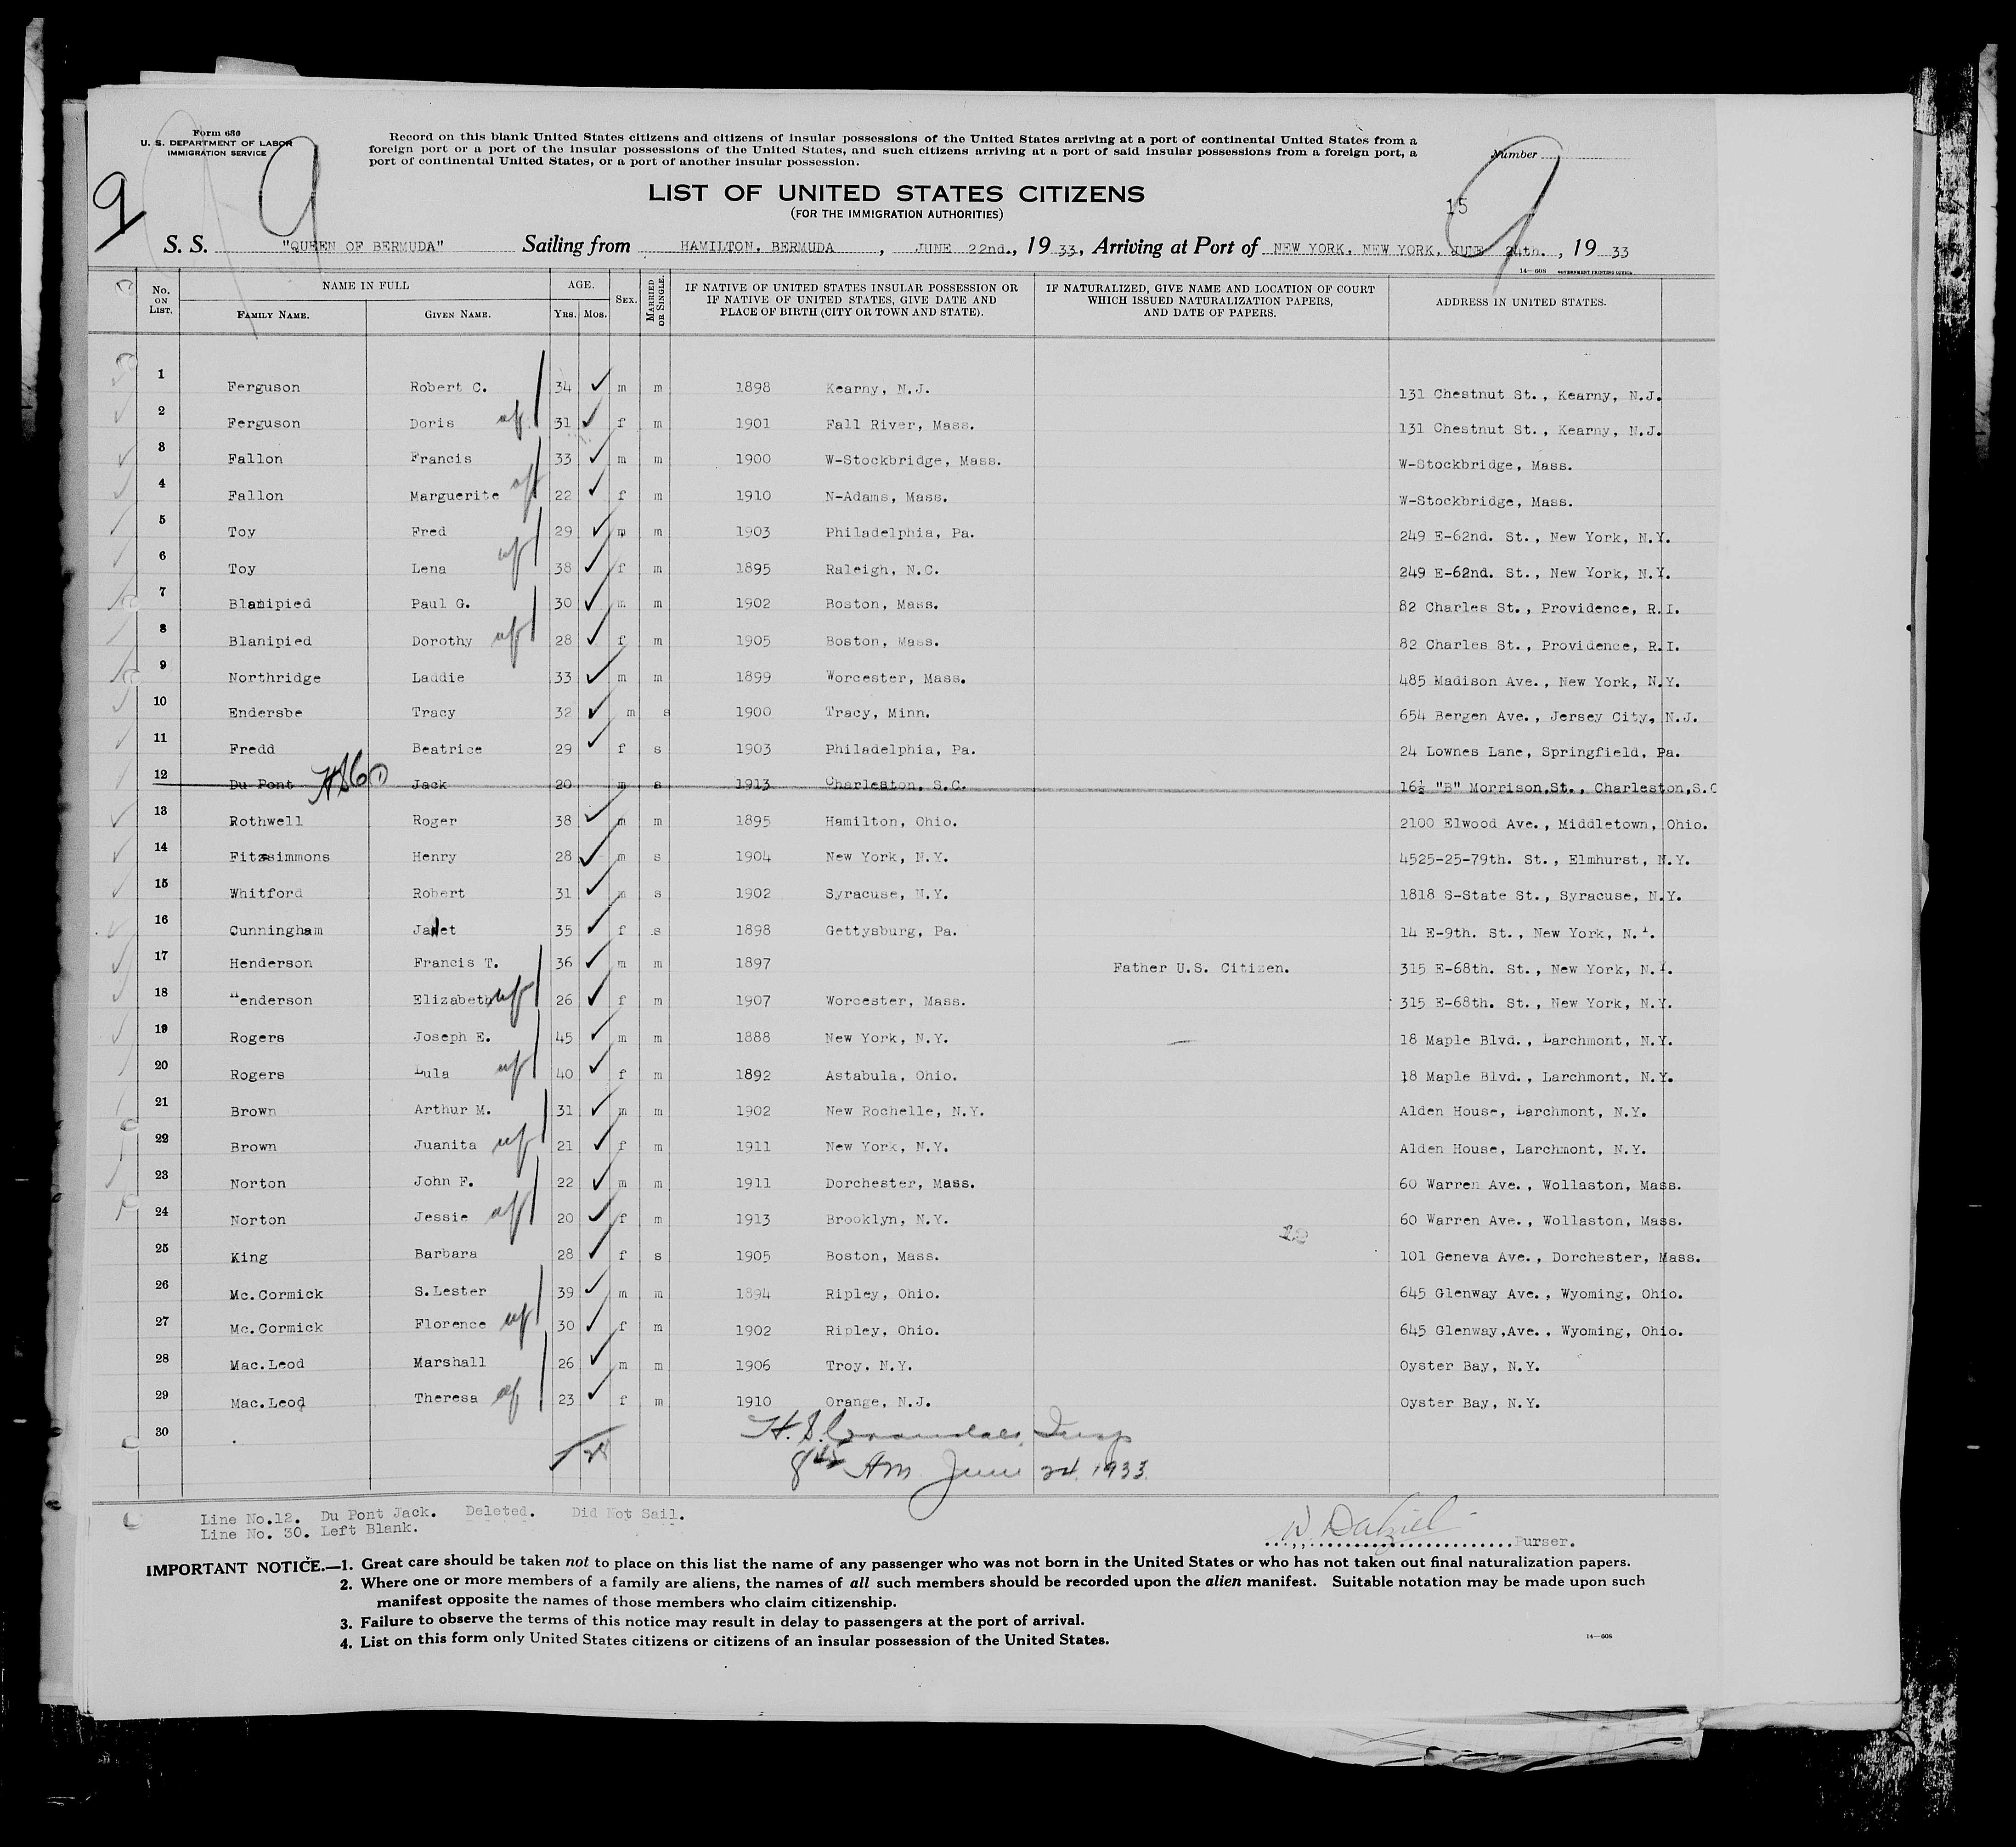 Form 630
U. S. DEPARTMENT OF LABOR
IMMIGRATION SERVICE
Record on this blank United States citizens and citizens of insular possessions of the United States arriving at a port of continental United States from a
foreign port or a port of the insular possessions of the United States, and such citizens arriving at a port of said insular possessions from a foreign port, a
port of continental United States, or a port of another insular possession.
Number
9 9 9
LIST OF UNITED STATES CITIZENS
(FOR THE IMMIGRATION AUTHORITIES)
15
S. S. "QUEEN OF BERMUDA" Sailing from HAMILTON, BERMUDA, JUNE 22nd., 1933, Arriving at Port of NEW YORK, NEW YORK, JUNE 24th., 1933
14—608 GOVERNMENT PRINTING OFFICE
No. ON LIST. NAME IN FULL FAMILY NAME. GIVEN NAME. AGE. YRS. MOS. SEX. MARRIED OR SINGLE. IF NATIVE OF UNITED STATES INSULAR POSSESSION OR IF NATIVE OF UNITED STATES, GIVE DATE AND PLACE OF BIRTH (CITY OR TOWN AND STATE). IF NATURALIZED, GIVE NAME AND LOCATION OF COURT WHICH ISSUED NATURALIZATION PAPERS, AND DATE OF PAPERS. ADDRESS IN UNITED STATES.
1 Ferguson Robert C. 34 m m 1898 Kearny, N.J. 131 Chestnut St., Kearny, N.J.
2 Ferguson Doris 31 f m 1901 Fall River, Mass. 131 Chestnut St., Kearny, N.J.
3 Fallon Francis 33 m m 1900 W-Stockbridge, Mass. W-Stockbridge, Mass.
4 Fallon Marguerite 22 f m 1910 N-Adams, Mass. W-Stockbridge, Mass.
5 Toy Fred 29 m m 1903 Philadelphia, Pa. 249 E-62nd. St., New York, N.Y.
6 Toy Lena 38 f m 1895 Raleigh, N.C. 249 E-62nd. St., New York, N.Y.
7 Blanipied Paul G. 30 m m 1902 Boston, Mass. 82 Charles St., Providence, R.I.
8 Blanipied Dorothy 28 f m 1905 Boston, Mass. 82 Charles St., Providence, R.I.
9 Northridge Laddie 33 m m 1899 Worcester, Mass. 485 Madison Ave., New York, N.Y.
10 Endersbe Tracy 32 m s 1900 Tracy, Minn. 654 Bergen Ave., Jersey City, N.J.
11 Fredd Beatrice 29 f s 1903 Philadelphia, Pa. 24 Lownes Lane, Springfield, Pa.
12 Du Pont Jack 20 m s 1913 Charleston, S.C. 16½ "B" Morrison,St., Charleston,S.C
13 Rothwell Roger 38 m m 1895 Hamilton, Ohio. 2100 Elwood Ave., Middletown, Ohio.
14 Fitzsimmons Henry 28 m s 1904 New York, N.Y. 4525-25-79th. St., Elmhurst, N.Y.
15 Whitford Robert 31 m s 1902 Syracuse, N.Y. 1818 S-State St., Syracuse, N.Y.
16 Cunningham Janet 35 f s 1898 Gettysburg, Pa. 14 E-9th. St., New York, N.Y.
17 Henderson Francis T. 36 m m 1897 Father U.S. Citizen. 315 E-68th. St., New York, N.Y.
18 Henderson Elizabeth 26 f m 1907 Worcester, Mass. 315 E-68th. St., New York, N.Y.
19 Rogers Joseph E. 45 m m 1888 New York, N.Y. 18 Maple Blvd., Larchmont, N.Y.
20 Rogers Lula 40 f m 1892 Astabula, Ohio. 18 Maple Blvd., Larchmont, N.Y.
21 Brown Arthur M. 31 m m 1902 New Rochelle, N.Y. Alden House, Larchmont, N.Y.
22 Brown Juanita 21 f m 1911 New York, N.Y. Alden House, Larchmont, N.Y.
23 Norton John F. 22 m m 1911 Dorchester, Mass. 60 Warren Ave., Wollaston, Mass.
24 Norton Jessie 20 f m 1913 Brooklyn, N.Y. 60 Warren Ave., Wollaston, Mass.
25 King Barbara 28 f s 1905 Boston, Mass. 101 Geneva Ave., Dorchester, Mass.
26 Mc.Cormick S.Lester 39 m m 1894 Ripley, Ohio. 645 Glenway Ave., Wyoming, Ohio.
27 Mc.Cormick Florence 30 f m 1902 Ripley, Ohio. 645 Glenway,Ave., Wyoming, Ohio.
28 Mac.Leod Marshall 26 m m 1906 Troy, N.Y. Oyster Bay, N.Y.
29 Mac.Leod Theresa 23 f m 1910 Orange, N.J. Oyster Bay, N.Y.
30
H. S. Insp
Am June 24, 1933.
Line No.12. Du Pont Jack. Deleted. Did Not Sail.
Line No. 30. Left Blank.
Purser.
IMPORTANT NOTICE.—1. Great care should be taken not to place on this list the name of any passenger who was not born in the United States or who has not taken out final naturalization papers.
2. Where one or more members of a family are aliens, the names of all such members should be recorded upon the alien manifest. Suitable notation may be made upon such
manifest opposite the names of those members who claim citizenship.
3. Failure to observe the terms of this notice may result in delay to passengers at the port of arrival.
4. List on this form only United States citizens or citizens of an insular possession of the United States.
14—608